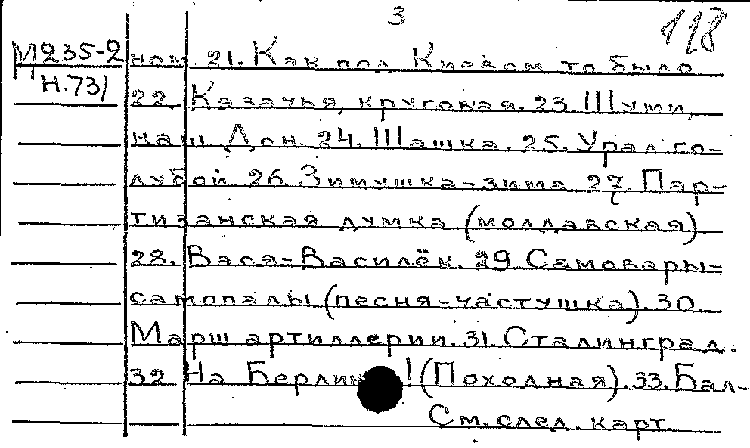 3
118
М235-2 ном. 21. Как под Киевом то было
Н.731
22. Казачья круговая. 23. Шуми,
наш Дон. 24. Шашка. 25. Урал го-
лубой. 26. Зимушка-зима 27. Пар-
тизанская думка (молдавская)
22. Вася-Василёк. 29. Самовары-
самопалы (песня-частушка). 30.
Марш артиллерии. 31. Сталинград.
32. На Берлин! (Походная). 33. Бал-
См. след. карт